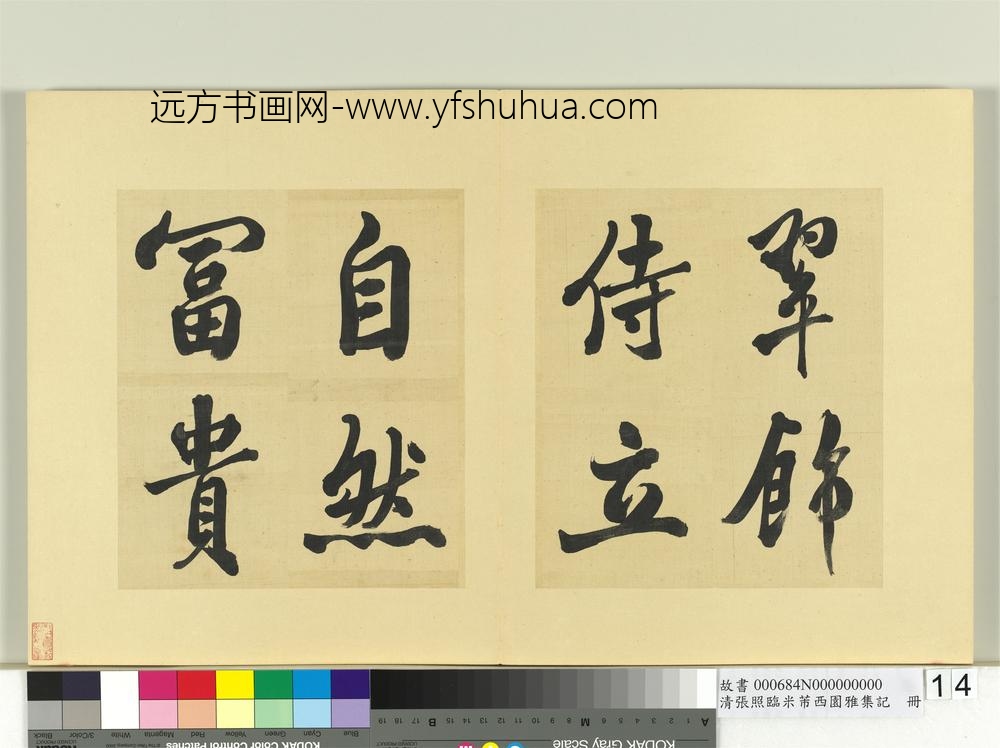 远方书画网-www.yfshuhua.com
翠飾
侍立
自然
冨貴
故書 000684N000000000
清張照臨米芾西園雅集記 冊
14
Black
3/Color
White
Magenta
Red
Yellow
Green
Cyan
Blue
KODAK Color Control Patches
KODAK Gray Scale
A 1 2 3 4 5 6 M 8 9 10 11 12 13 14 15 B 17 18 19